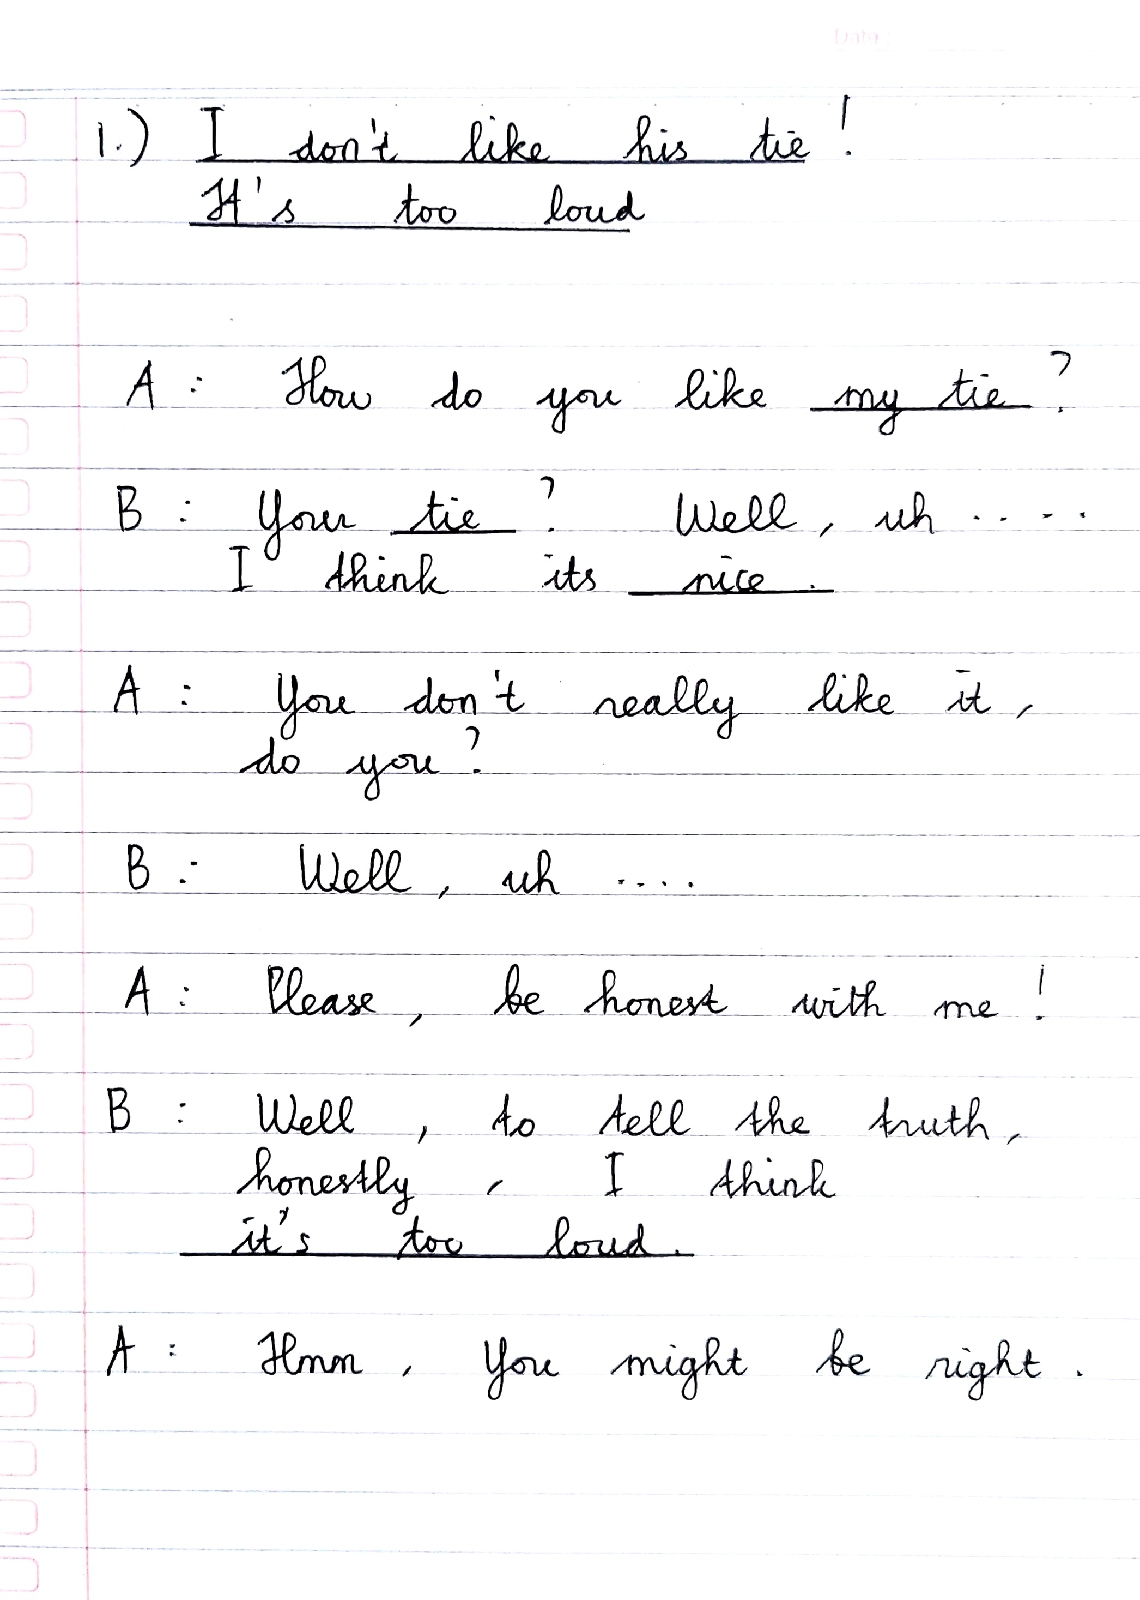 Date
1.) I don't like his tie!
It's too loud
A : How do you like my tie?
B : Your tie? Well, uh .....
I think its nice.
A : You don't really like it,
do you?
B : Well, uh ....
A : Please, be honest with me!
B : Well, to tell the truth,
honestly, I think
it's too loud.
A : Hmm, You might be right.